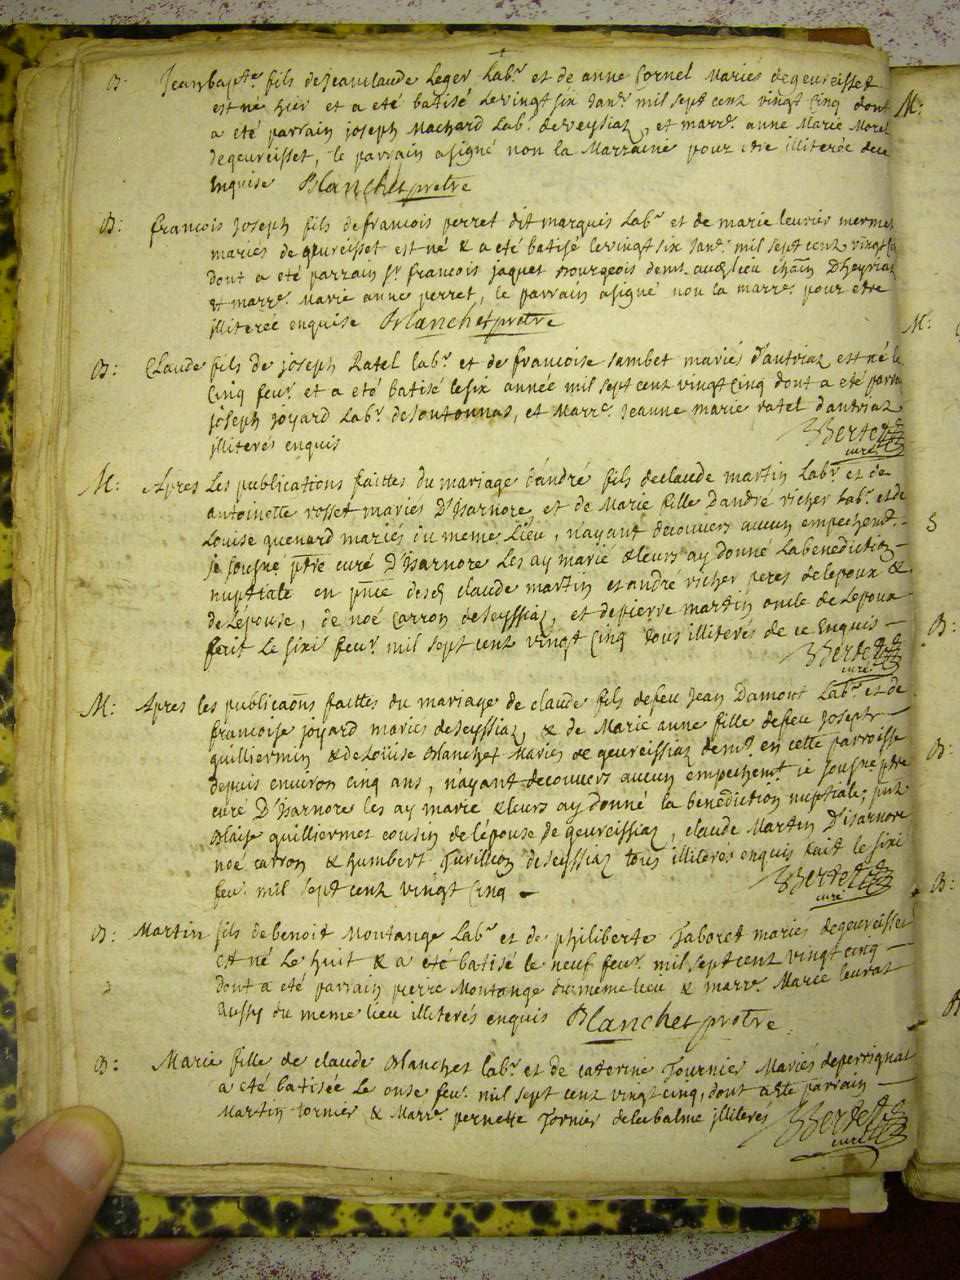 B: Jeanbapte. fils de jeanclaude Leger Labr. et de anne Cornel Mariés de geureisset
est né hier et a eté batisé le vingt six Janr. mil sept cent vingt cinq dont
a eté parrain joseph Machard Labr. de veysiaz, et marre. anne Marie Morel
de geureisset, le parrain a signé non la Marraine pour etre illiterée de ce
Enquise Blanchet pretre
B: francois Joseph fils de francois perret dit marquis Labr. et de marie leurir mermet
mariés de geureisset est né & a eté batisé le vingt six Janr. mil sept cent vingt
dont a eté parrain sr. francois jaquet Bourgeois demt. lieu D'heyriaz
& marre. Marie anne perret, le parrain a signé non la marre. pour etre
illiterée enquise Blanchet pretre
B: Claude fils de joseph Ratel labr. et de francoise sambet mariés d'autriaz est né le
cinq feur. et a eté batisé le six année mil sept cent vingt cinq dont a eté
joseph joyard Labr. de soutonnas, et Marre. Jeanne marie ratel d'autriaz
illiterés enquis Bertet
curé
M: Apres Les publications faittes du mariage d'andré fils de claude martin Labr. et de
antoinette rosset mariés D'Isarnore, et de Marie fille D'andré richer Labr. et de
Louise quenard mariés du meme Lieu, n'ayant decouvert aucun empechemt.
je sousné ptre curé D'Isarnore Les ay marié & leurs ay donné La benediction
nuptiale en pnce desd claude martin et andré richer peres de l'epoux &
de l'épouse, de noé carron de seyssiaz, et de pierre martin oncle de l'epoux
fait Le sixe feur. mil sept cent vingt cinq tous illiterés de ce Enquis
Bertet
curé
M: Apres les publicaons faittes du mariage de claude fils de feu Jean Damont Labr. et de
francoise joyard mariés de seyssiaz, & de Marie anne fille de feu joseph
quilliermin & de Loüise Blanchet Mariés de geureissiaz demt. en cette parroisse
depuis environ cinq ans, n'ayant decouvert aucun empechemt. je sousné ptre
curé D'Isarnore les ay marié & leurs ay donné la benediction nuptiale;
Blaise quilliermet cousin de l'épouse de geureissiaz, claude Martin D'isarnore
noe carron & humbert de seyssiaz tous illiterés enquis fait le sixe
feur. mil sept cent vingt cinq Bertet
curé
B: Martin fils de benoit Montange Labr. et de philiberte Taboret mariés de geureisset
est né Le huit & a eté batisé le neuf feur. mil sept cent vingt cinq
dont a eté parrain pierre Montange du meme lieu & marre. Marie leurat
aussy du meme lieu illiterés enquis Blanchet pretre
B: Marie fille de claude Blanchet labr. et de caterine Tournier Mariés de perrignat
a eté batisée Le onse feur. mil sept cent vingt cinq, dont parrain
Martin tornier & Marre. pernette Tornier de la balme illiteres Bertet
curé